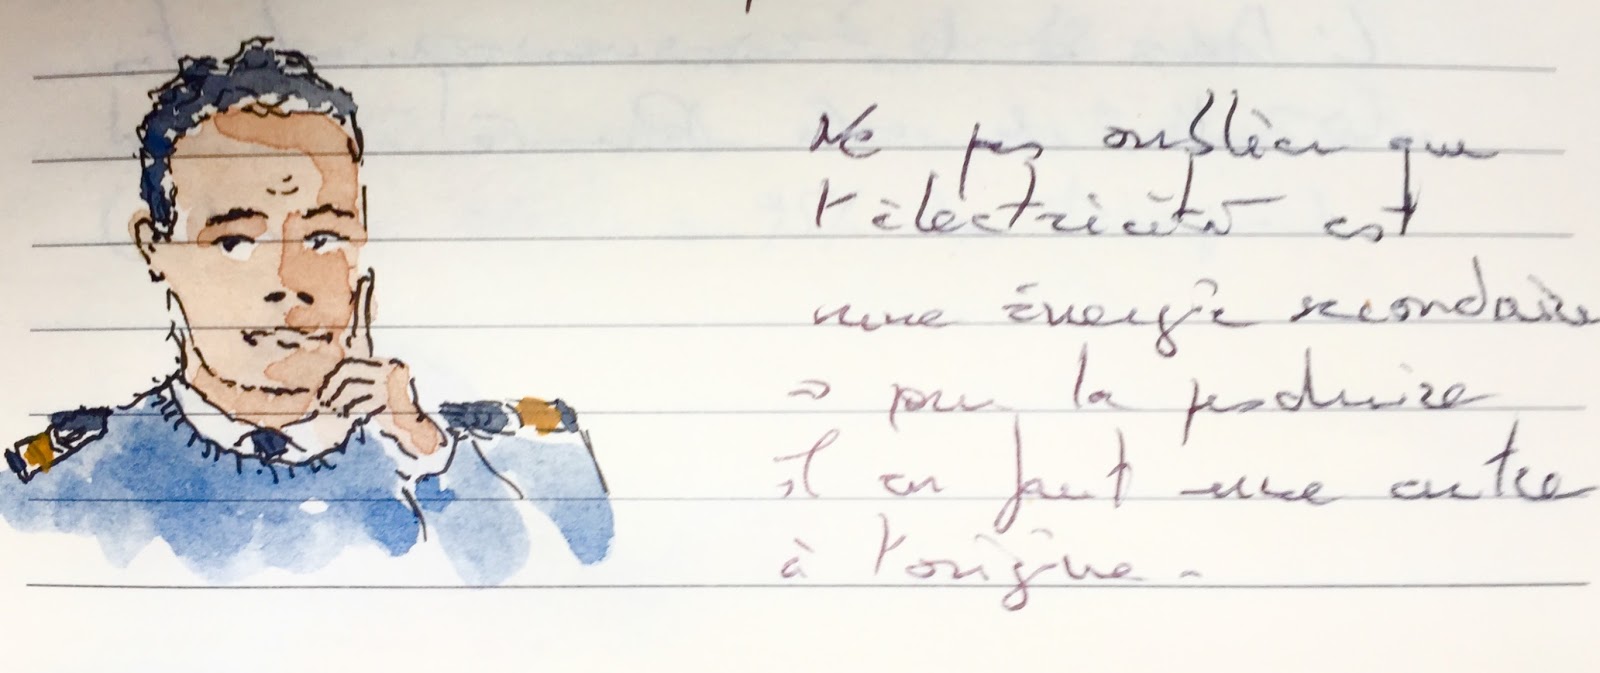 Ne pas oublier que
l'électricité est
une énergie secondaire
⇒ pour la produire
il en faut une autre
à l'origine.